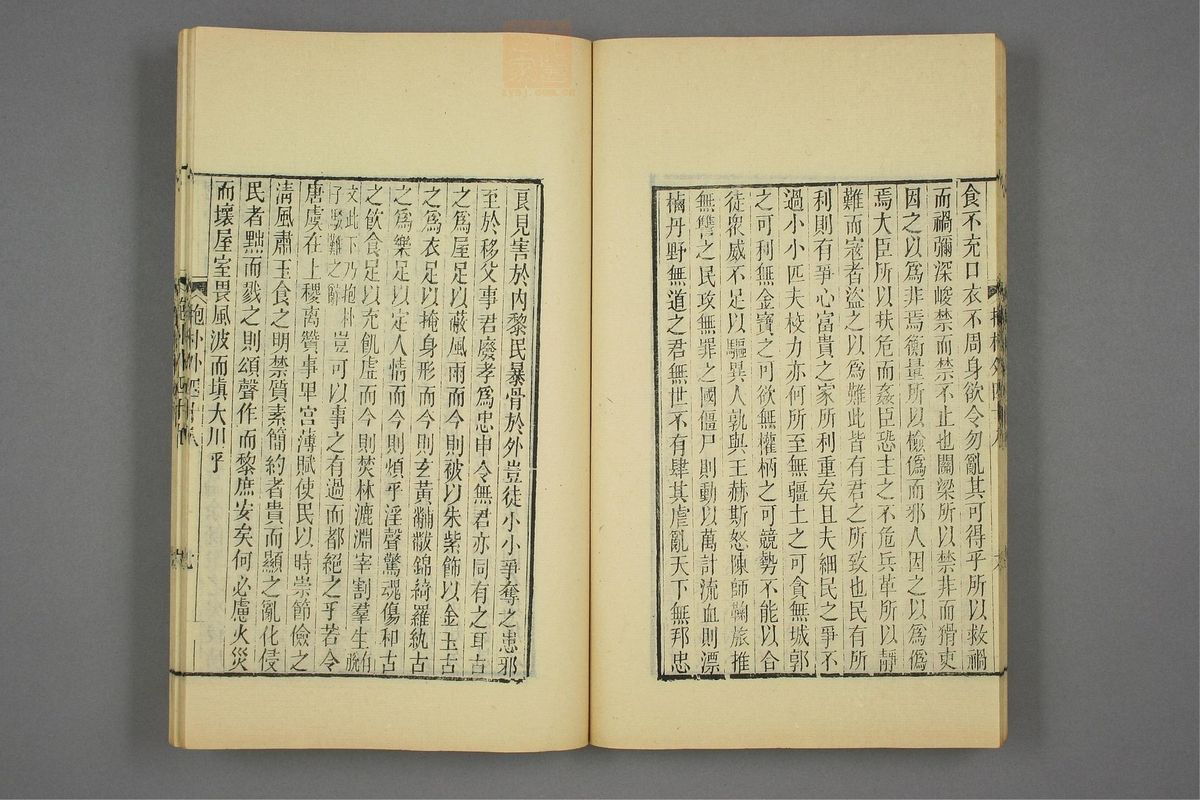 食不充口衣不周身欲令勿亂其可得乎所以救禍
而禍彌深峻禁而禁不止也關梁所以禁非而猾吏
因之以爲非焉衡量所以檢僞而邪人因之以爲僞
焉大臣所以扶危而姦臣恐主之不危兵革所以靜
難而寇者盜之以爲難此皆有君之所致也民有所
利則有爭心富貴之家所利重矣且夫細民之爭不
過小小匹夫校力亦何所至無疆土之可貪無城郭
之可利無金寶之可欲無權柄之可競勢不能以合
徒衆威不足以驅異人孰與王赫斯怒陳師鞠旅推
無讐之民攻無罪之國僵尸則動以萬計流血則漂
櫓丹野無道之君無世不有肆其虐亂天下無邦忠
良見害於內黎民暴骨於外豈徒小小爭奪之患邪
至於移父事君廢孝爲忠申令無君亦同有之耳古
之爲屋足以蔽風雨而今則被以朱紫飾以金玉古
之爲衣足以掩身形而今則玄黃黼黻錦綺羅紈古
之爲樂足以定人情而今則煩乎淫聲驚魂傷和古
之飲食足以充飢虛而今則焚林漉淵宰割羣生有脫
文此下乃抱朴子駁難之辭豈可以事之有過而都絕之乎若令
唐虞在上稷卨贊事卑宮薄賦使民以時崇節儉之
淸風肅玉食之明禁質素簡約者貴而顯之亂化侵
民者黜而戮之則頌聲作而黎庶安矣何必慮火災
而壞屋室畏風波而塡大川乎
抱朴外四十八